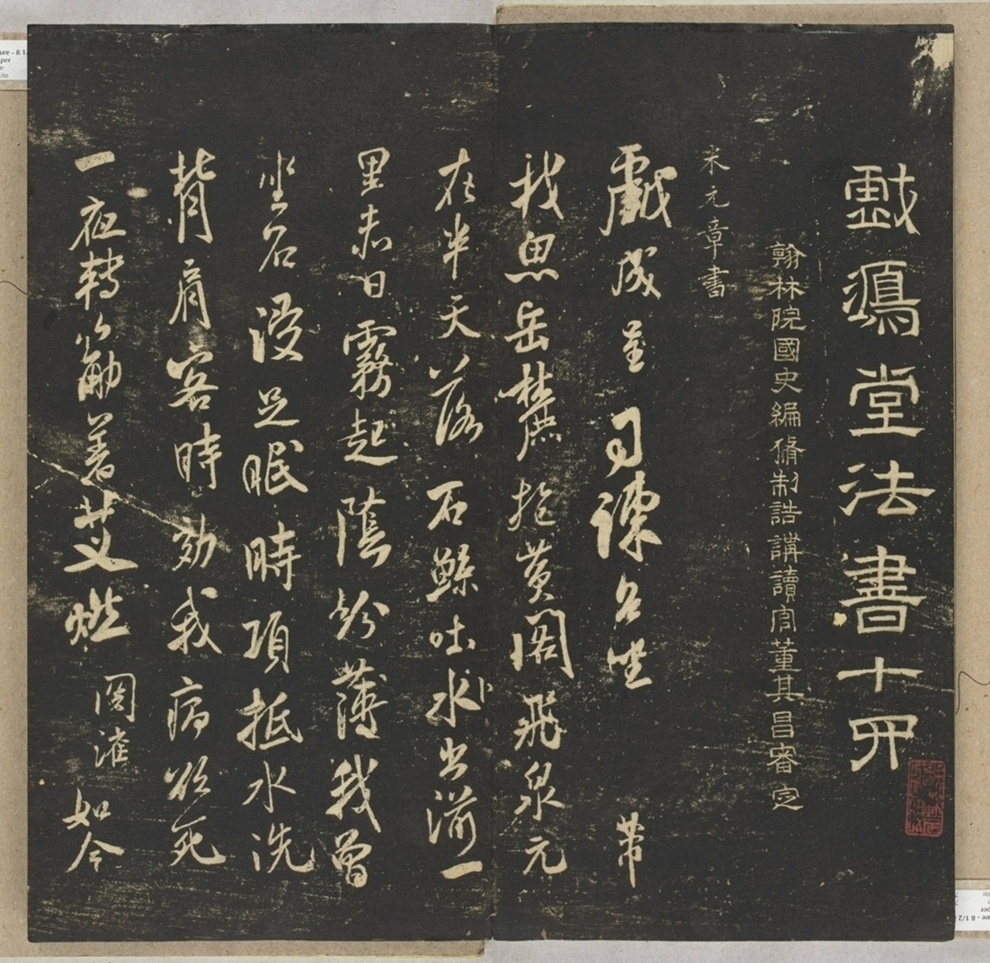 戲鴻堂法書十四
翰林院國史編脩制誥講讀官董其昌審定
米元章書
戲成呈司諫台坐 芾
我思岳麓抱黃閣飛泉元
在半天落石鯨吐水出湔一
里赤日霧起蔭紛薄我曾
坐石浸足眠時項抵水洗
背肩客時効我病欲死
一夜轉筋著艾燃 関灌 如今